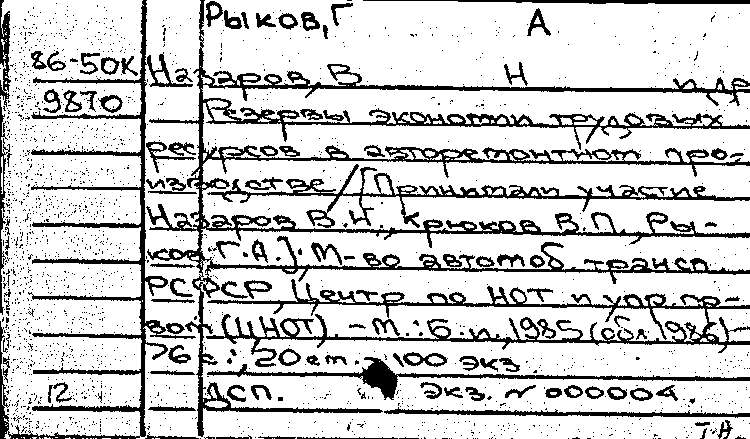 Рыков, Г А
86-50К Назаров, В Н и др
9870 Резервы экономии трудовых
ресурсов в авторемонтном про-
изводстве / [Принимали участие
Назаров В.Н., Крюков В.П., Ры-
ков Г.А.]; М-во автомоб. трансп.
РСФСР, Центр по НОТ и упр. пр-
вом (ЦНОТ). - М.: Б.и., 1985 (обл. 1986) -
76 с.; 20 см. - 100 экз
12 ДСП. Экз. № 000004.
Т.А